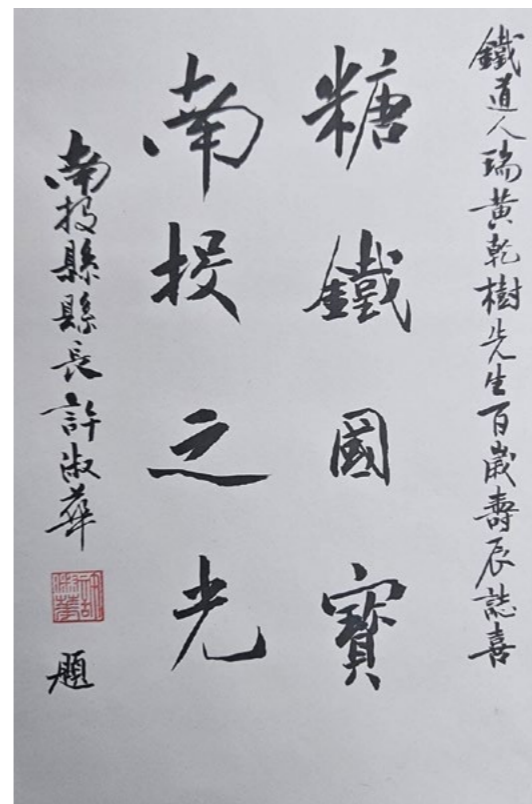 鐵道人瑞黃乾樹先生百歲壽辰誌喜
糖鐵國寶
南投之光
南投縣縣長許淑華
題